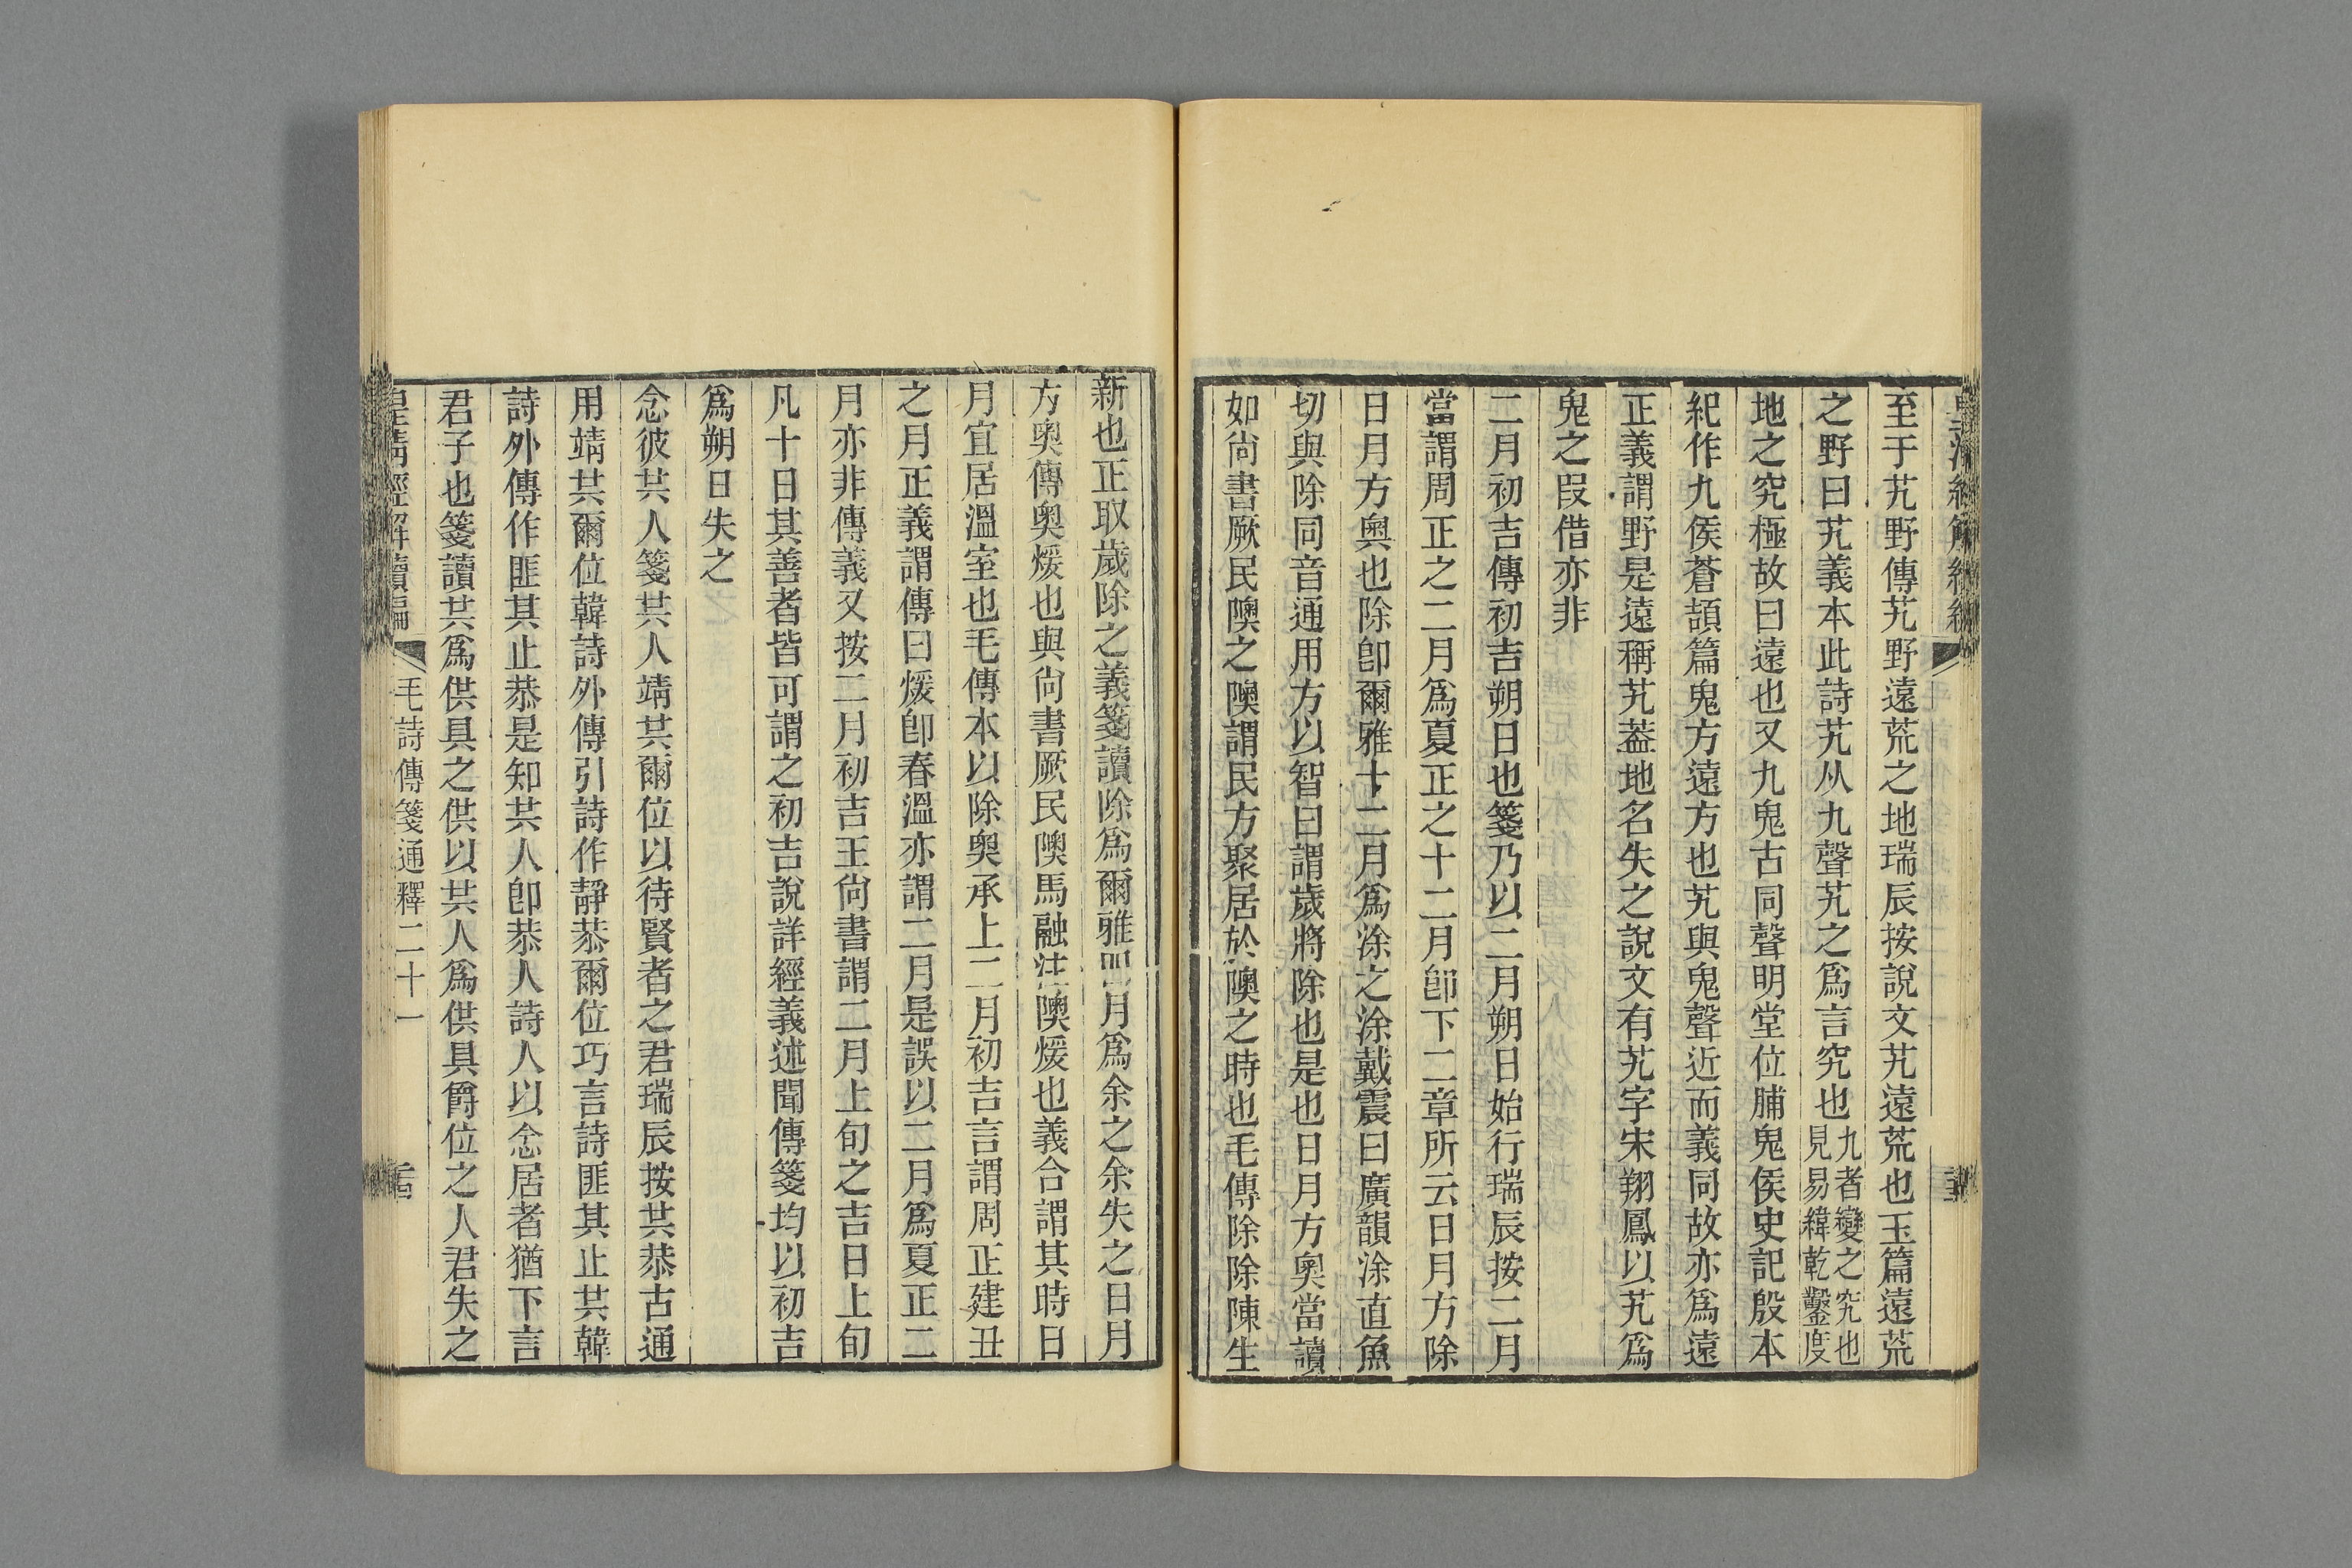 至于艽野傳艽野遠荒之地瑞辰按說文艽遠荒也玉篇遠荒
之野曰艽義本此詩艽从九聲艽之爲言究也九者變之究也見易緯乾鑿度
地之究極故曰遠也又九鬼古同聲明堂位脯鬼侯史記殷本
紀作九侯蒼頡篇鬼方遠方也艽與鬼聲近而義同故亦爲遠
正義謂野是遠稱艽葢地名失之說文有艽字宋翔鳳以艽爲
鬼之叚借亦非
二月初吉傳初吉朔日也箋乃以二月朔日始行瑞辰按二月
當謂周正之二月爲夏正之十二月卽下二章所云日月方除
日月方奧也除卽爾雅十二月爲涂之涂戴震曰廣韻涂直魚
切與除同音通用方以智曰謂歲將除也是也日月方奧當讀
如尙書厥民隩之隩謂民方聚居於隩之時也毛傳除除陳生
新也正取歲除之義箋讀除爲爾雅四月爲余之余失之日月
方奧傳奧煖也與尙書厥民隩馬融注隩煖也義合謂其時日
月宜居溫室也毛傳本以除奧承上二月初吉言謂周正建丑
之月正義謂傳曰煖卽春溫亦謂二月是誤以二月爲夏正二
月亦非傳義又按二月初吉王尙書謂二月上旬之吉日上旬
凡十日其善者皆可謂之初吉說詳經義述聞傳箋均以初吉
爲朔日失之
念彼共人箋共人靖共爾位以待賢者之君瑞辰按共恭古通
用靖共爾位韓詩外傳引詩作靜恭爾位巧言詩匪其止共韓
詩外傳作匪其止恭是知共人卽恭人詩人以念居者猶下言
君子也箋讀共爲供具之供以共人爲供具爵位之人君失之
皇清經解續編
毛詩傳箋通釋二十一